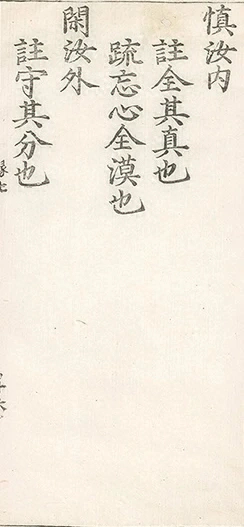 慎汝内
註全其真也
疏忘心全漠也
閑汝外
註守其分也